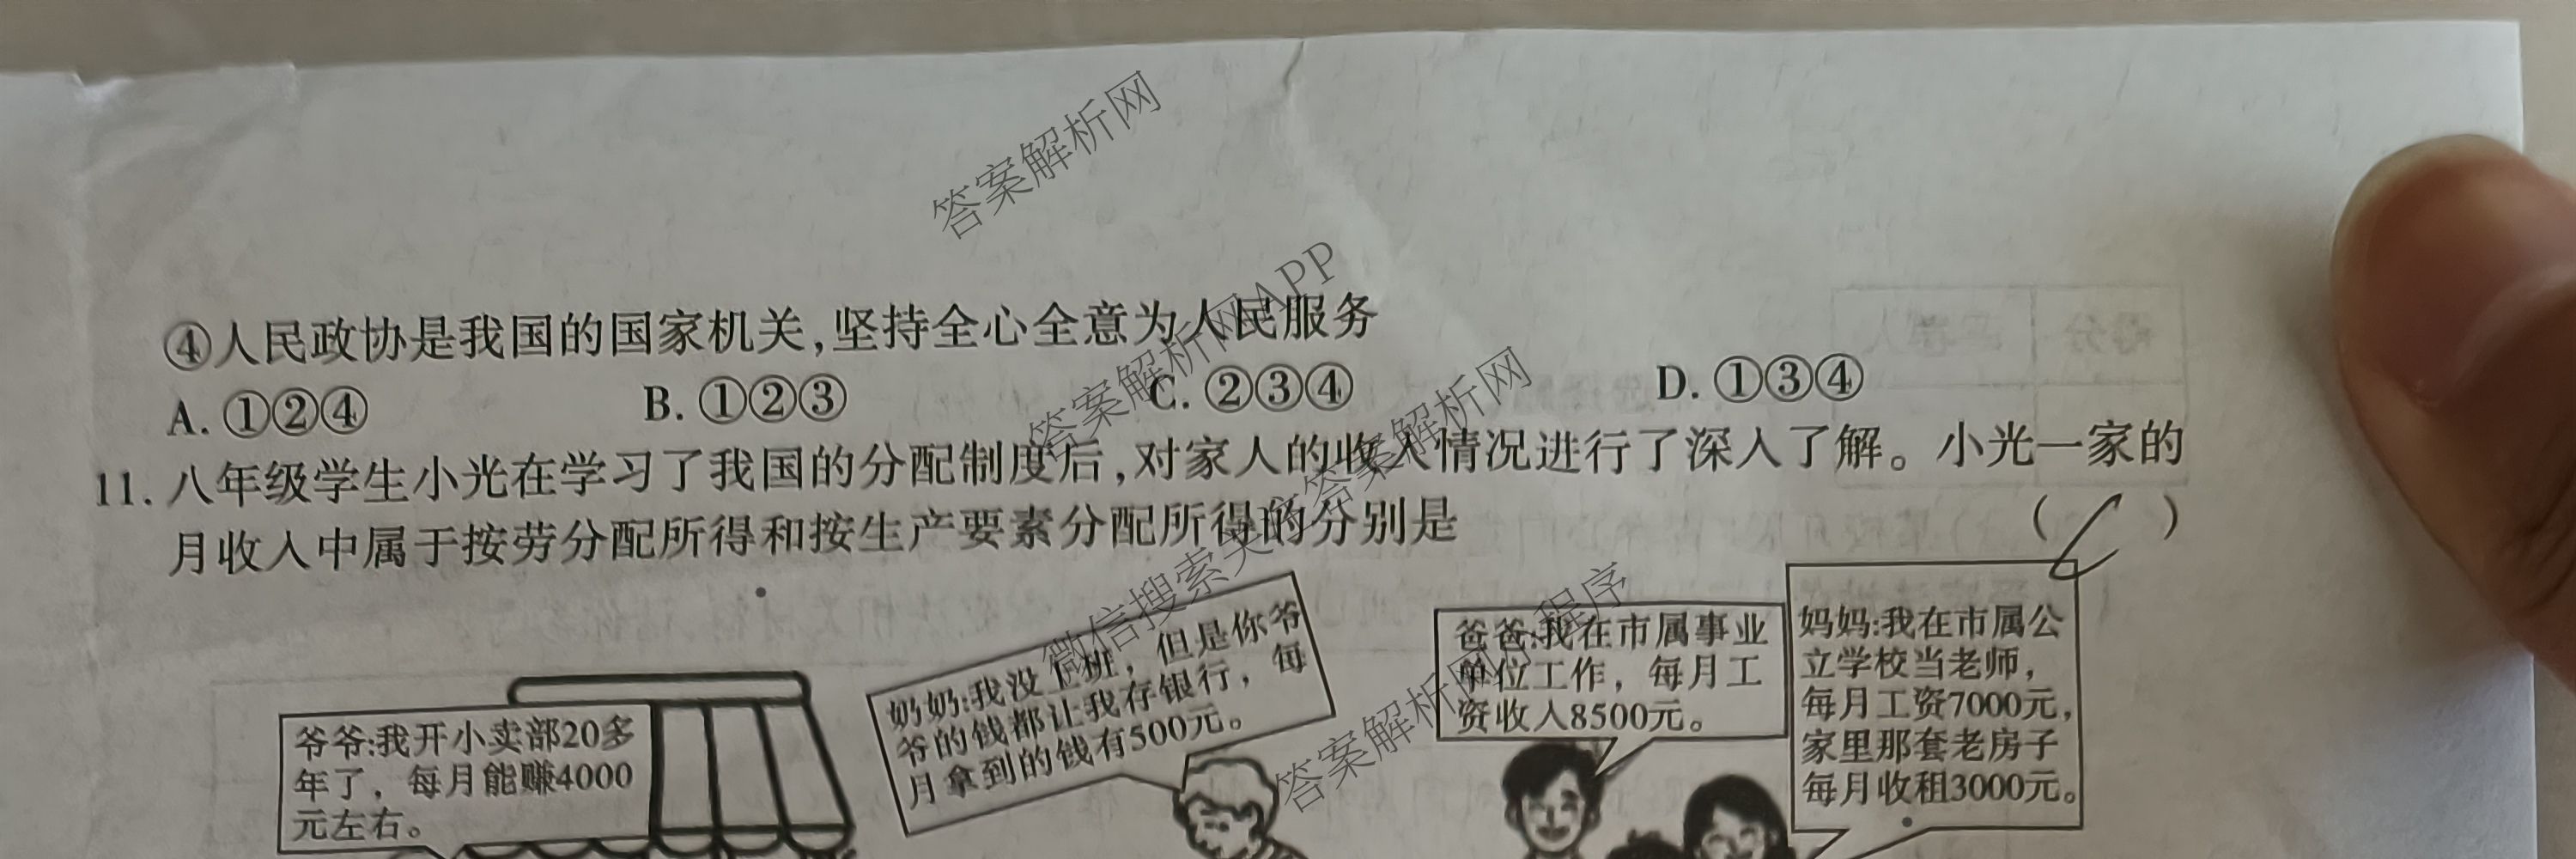 ④人民政协是我国的国家机关,坚持全心全意为人民服务
A. ①②④ B. ①②③ C. ②③④ D. ①③④
11. 八年级学生小光在学习了我国的分配制度后,对家人的收入情况进行了深入了解。小光一家的
月收入中属于按劳分配所得和按生产要素分配所得的分别是 ( )
爷爷:我开小卖部20多
年了，每月能赚4000
元左右。
奶奶:我没上班，但是你爷
爷的钱都让我存银行，每
月拿到的钱有500元。
爸爸:我在市属事业
单位工作，每月工
资收入8500元。
妈妈:我在市属公
立学校当老师，
每月工资7000元，
家里那套老房子
每月收租3000元。
答案解析网
答案解析网APP
答案解析网
微信搜索
小程序
答案解析网